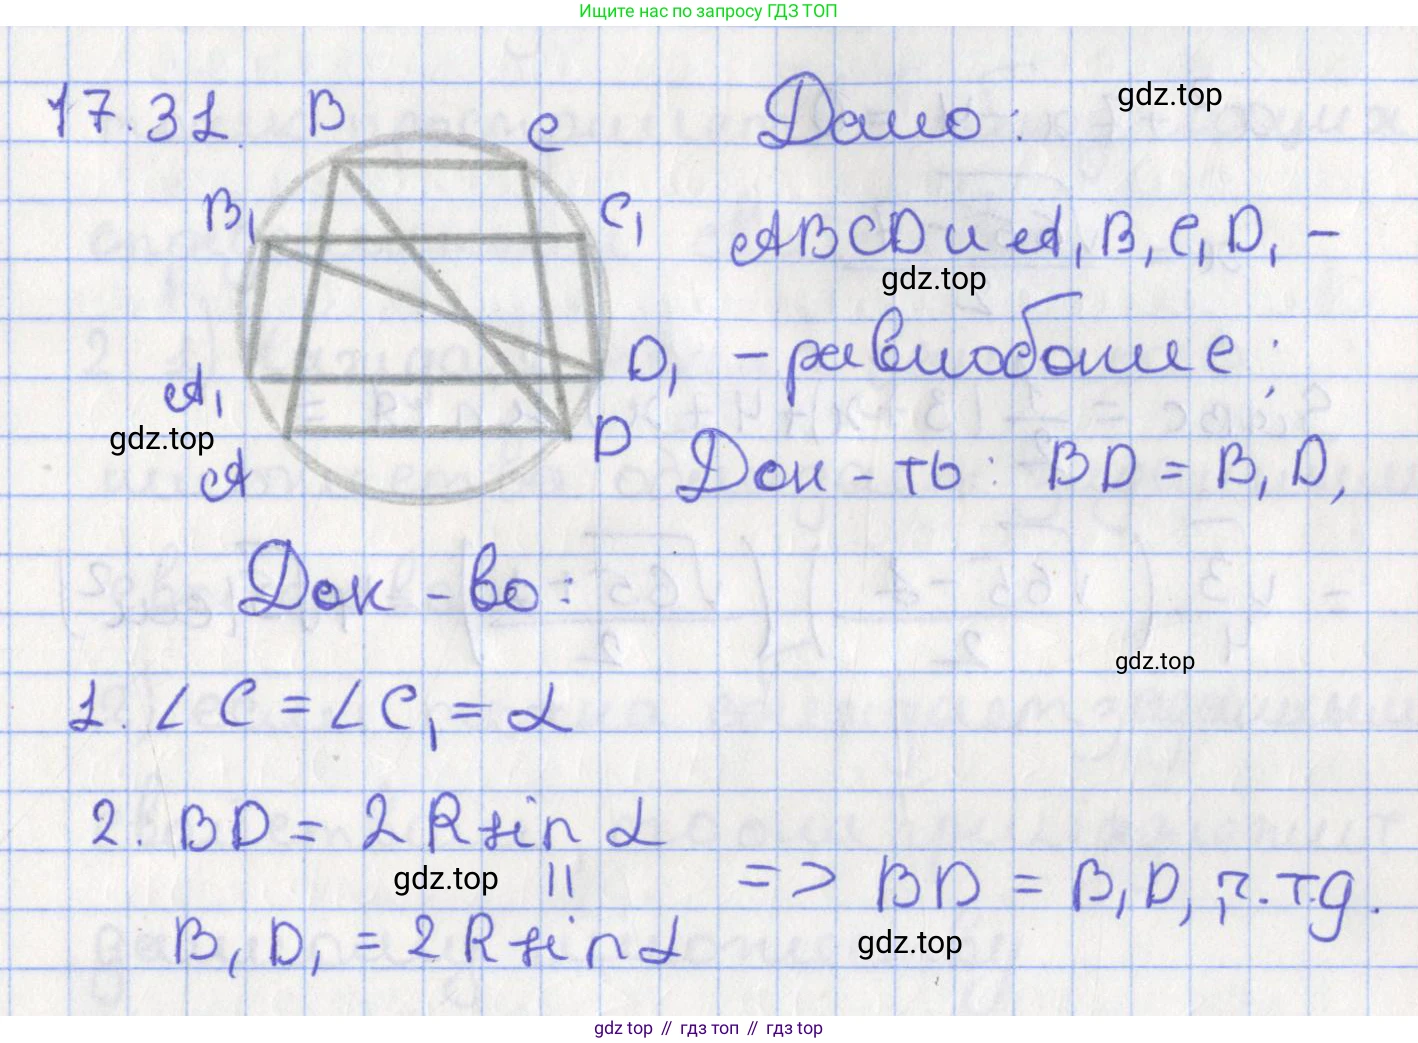 Ищите нас по запросу ГДЗ ТОП
17.31. B C Дано:
gdz.top
B₁ C₁ ABCD и A₁B₁C₁D₁ –
gdz.top
A₁ D₁ – равнобокие;
gdz.top
A D Док-ть: BD = B₁D₁
Док-во:
gdz.top
1. ∠C = ∠C₁ = α
2. BD = 2R sin α
gdz.top || => BD = B₁D₁, ч.т.д.
B₁D₁ = 2R sin α
gdz.top
gdz top // гдз топ // gdz top